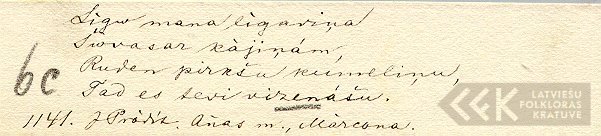 Ligw mana ligaviņa
Šwvasar kājiņám,
Ruden pirkšu kumeliņu,
Tad es tevi vizenášu.
6c
1141. J Prōdiz. Añas m., Mārcona.
LATVIEŠU
FOLKLORAS
KRĀTUVE